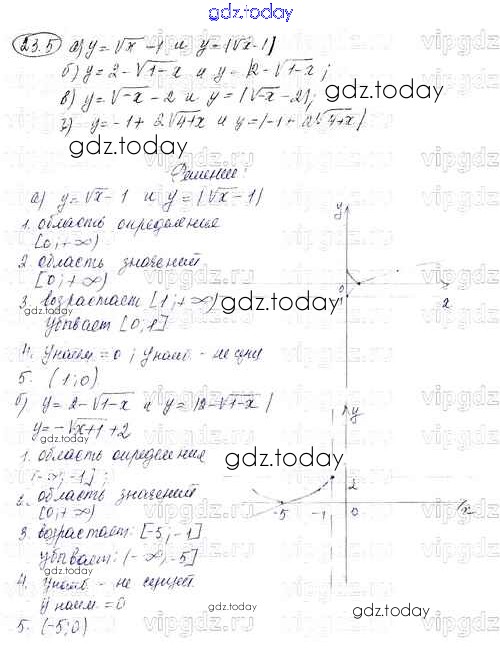 gdz.today
23.5 а) y = √x - 1 и y = |√x - 1|
б) y = 2 - √1-x и y = |2 - √1-x|;
в) y = √-x - 2 и y = |√-x - 2|;
г) y = -1 + 2√4+x и y = |-1 + 2√4+x|
gdz.today
gdz.today
Решение:
а) y = √x - 1 и y = |√x - 1|
1. область определения
[0; +∞)
2. область значений
[0; +∞)
3. возрастает [1; +∞)
убывает [0; 1]
gdz.today
4. yнаим. = 0; yнаиб - не сущ
5. (1; 0)
y
0
2
б) y = 2 - √1-x и y = |2 - √1-x|
y = -√x+1 + 2
gdz.today
1. область определения
(-∞; -1];
gdz.today
2. область значений
[0; +∞)
3. возрастает: [-5; -1]
убывает: (-∞; -5]
4. yнаиб - не сущест.
y наим = 0
5. (-5; 0)
y
2
-5 -1 0 x
gdz.today
gdz.today
gdz.today
vipgdz.ru